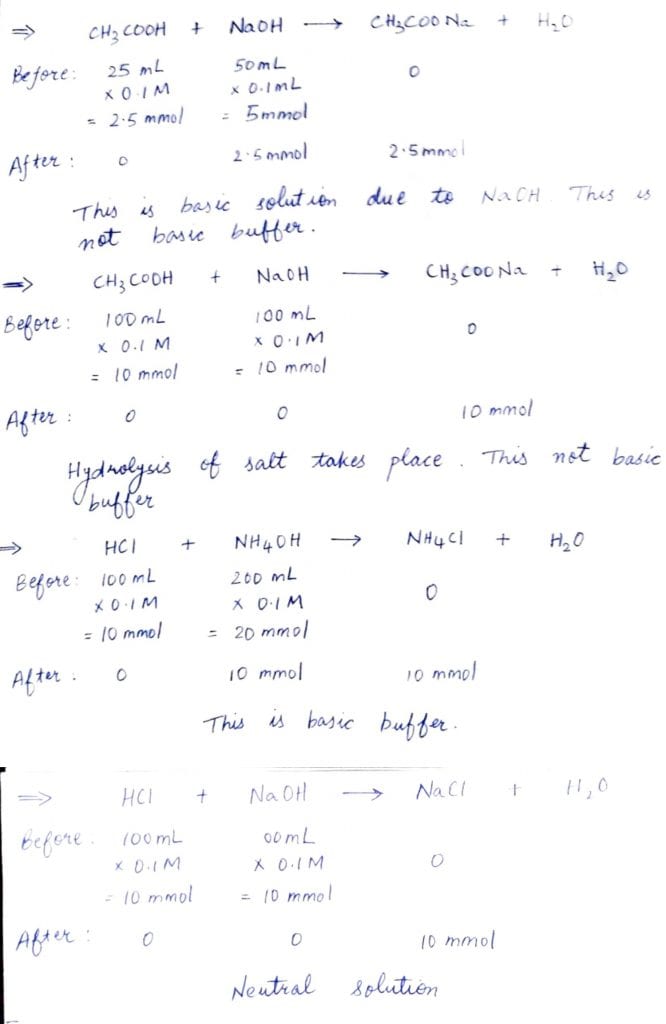 ⇒ CH3COOH + NaOH ⟶ CH3COONa + H2O
Before: 25 mL 50mL 0
x 0.1M x 0.1mL
= 2.5 mmol = 5mmol
After : 0 2.5mmol 2.5mmol
This is basic solution due to NaOH. This is
not basic buffer.
⇒ CH3COOH + NaOH ⟶ CH3COONa + H2O
Before: 100mL 100 mL 0
x 0.1 M x 0.1M
= 10 mmol = 10 mmol
After : 0 0 10 mmol
Hydrolysis of salt takes place. This not basic
buffer
⇒ HCl + NH4OH ⟶ NH4Cl + H2O
Before: 100 mL 200 mL 0
x 0.1M x 0.1M
= 10 mmol = 20 mmol
After . 0 10 mmol 10 mmol
This is basic buffer.
⇒ HCl + NaOH ⟶ NaCl + H2O
Before. 100mL 00mL 0
x 0.1M x 0.1M
= 10 mmol = 10 mmol
After : 0 0 10 mmol
Neutral solution